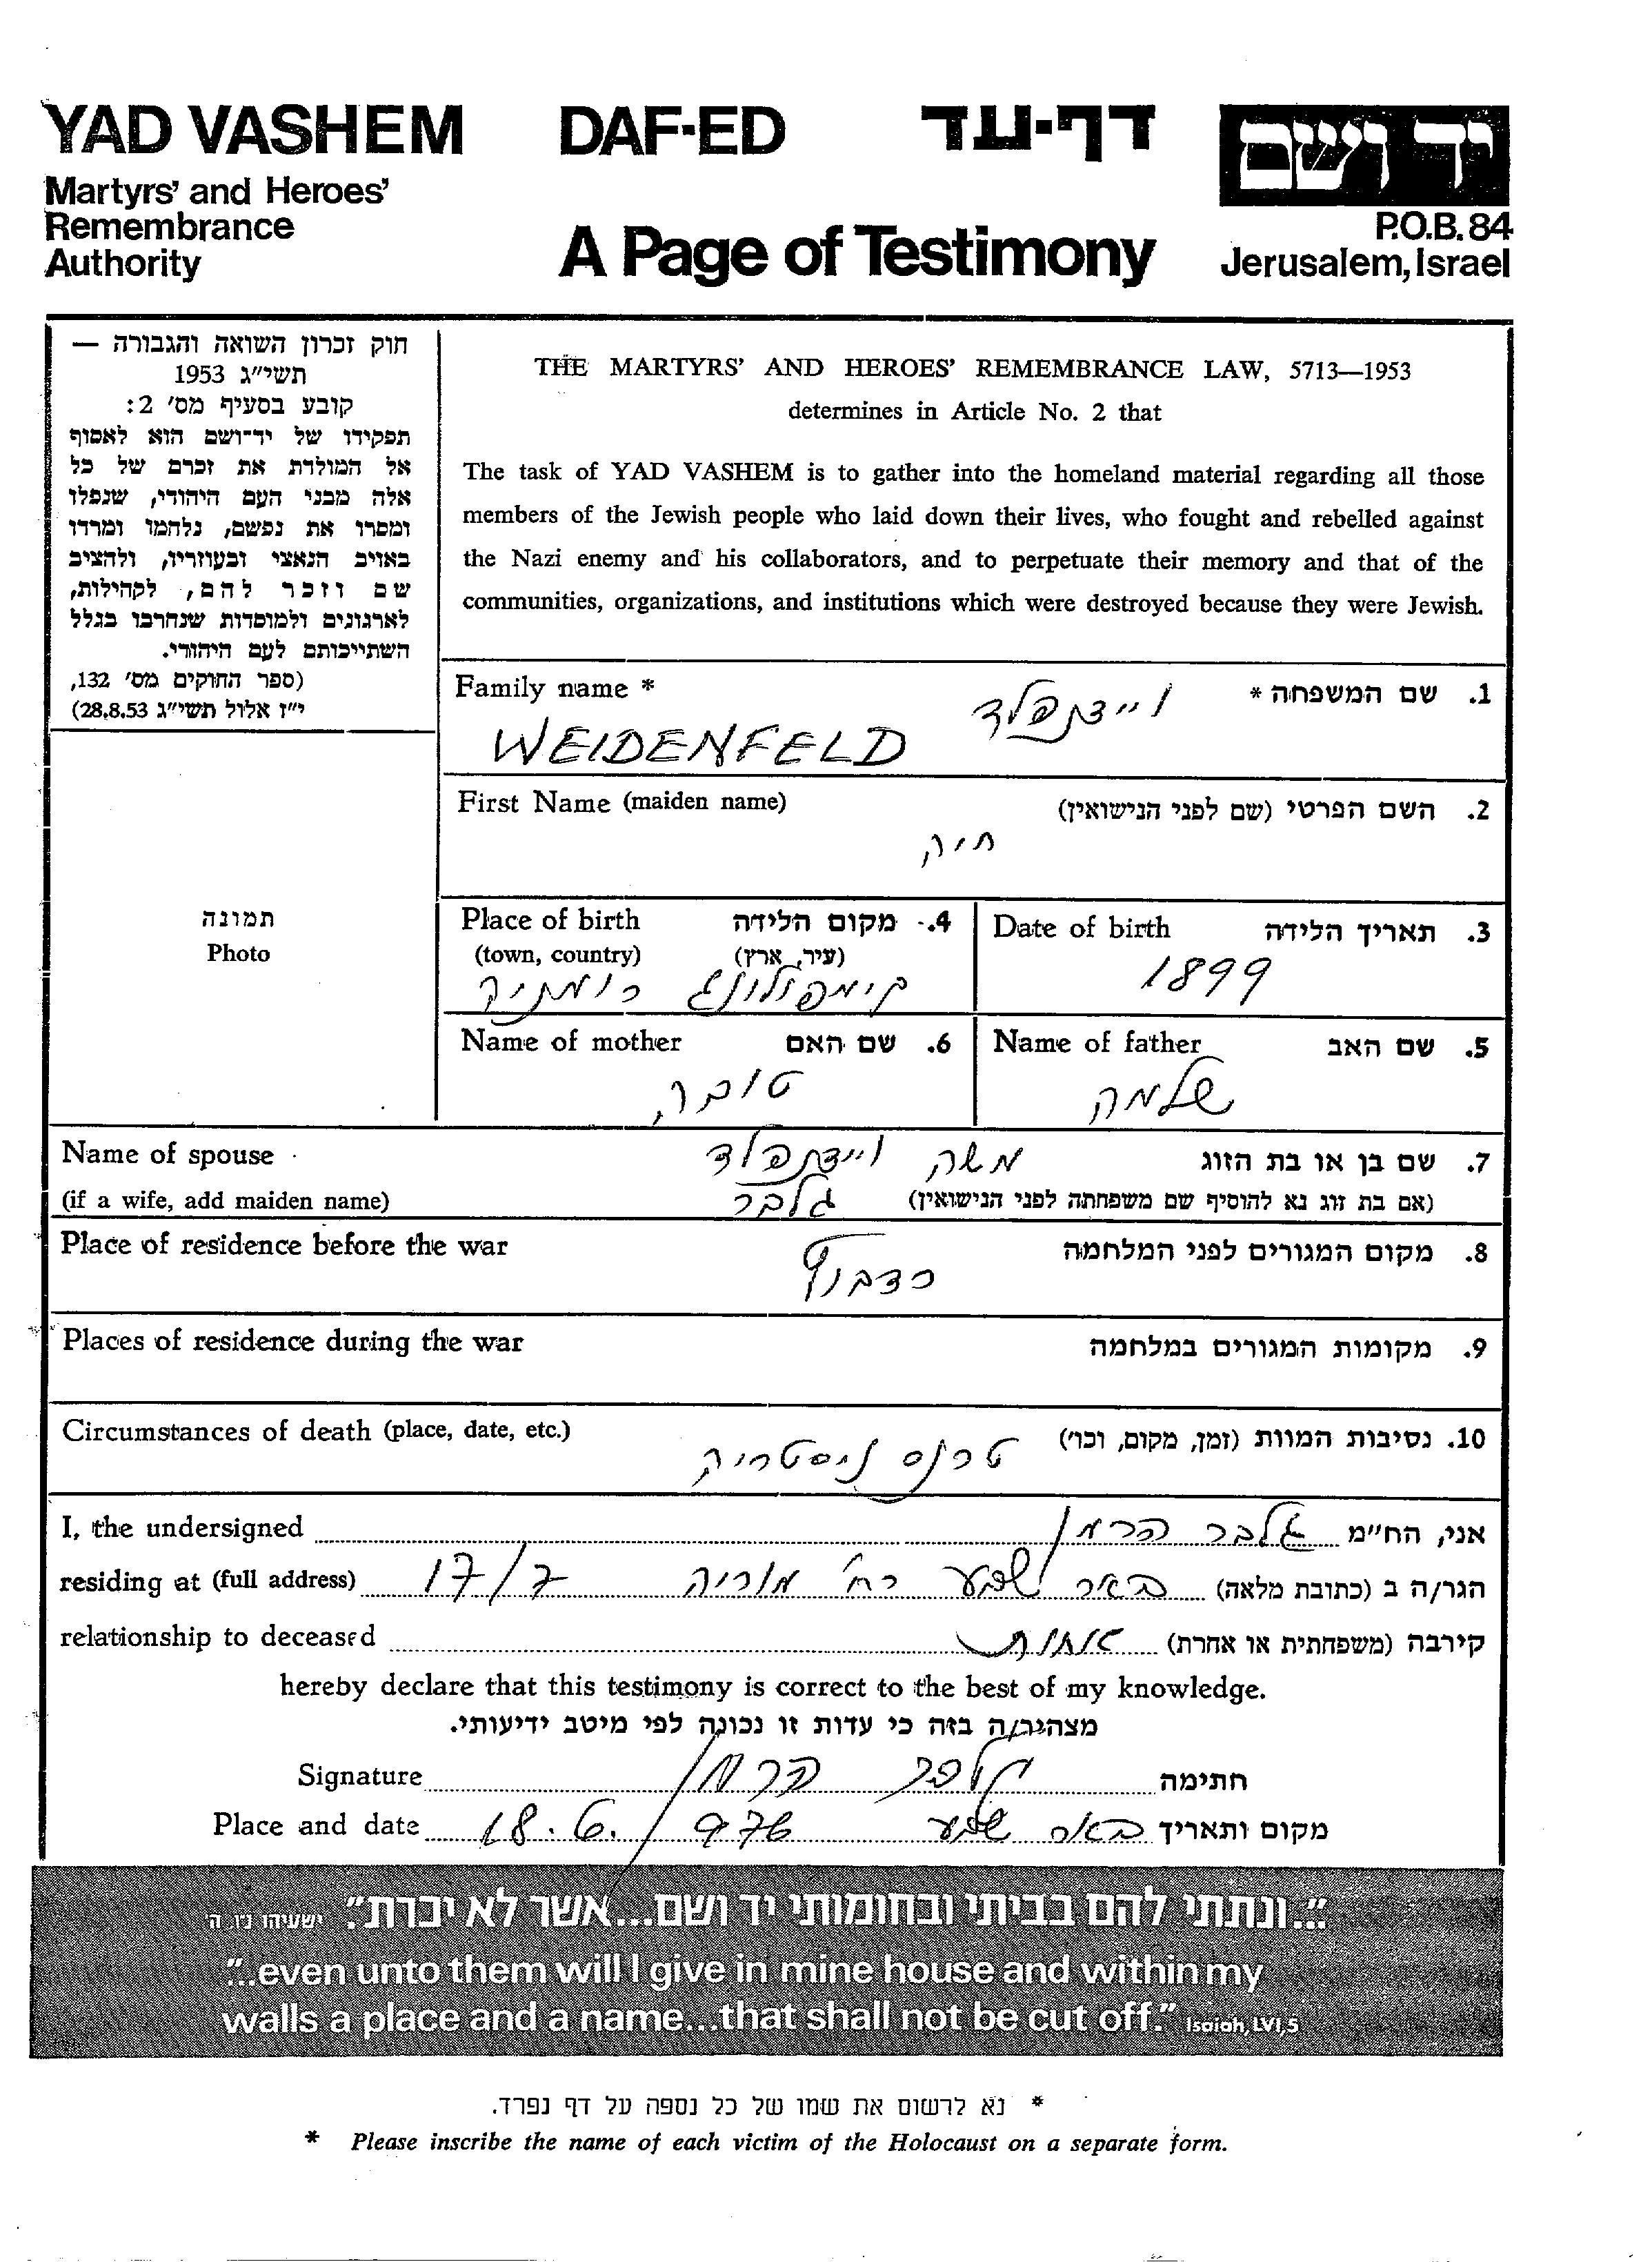 YAD VASHEM DAF-ED דף-עד יד ושם
Martyrs' and Heroes'
Remembrance
Authority
A Page of Testimony
P.O.B. 84
Jerusalem, Israel
חוק זכרון השואה והגבורה —
תשי"ג 1953
קובע בסעיף מס' 2:
תפקידו של יד-ושם הוא לאסוף
אל המולדת את זכרם של כל
אלה מבני העם היהודי, שנפלו
ומסרו את נפשם, נלחמו ומרדו
באויב הנאצי ובעוזריו, ולהציב
שם וזכר להם, לקהילות,
לארגונים ולמוסדות שנחרבו בגלל
השתייכותם לעם היהודי.
(ספר החוקים מס' 132,
י"ז אלול תשי"ג 28.8.53)
THE MARTYRS' AND HEROES' REMEMBRANCE LAW, 5713—1953
determines in Article No. 2 that
The task of YAD VASHEM is to gather into the homeland material regarding all those
members of the Jewish people who laid down their lives, who fought and rebelled against
the Nazi enemy and his collaborators, and to perpetuate their memory and that of the
communities, organizations, and institutions which were destroyed because they were Jewish.
תמונה
Photo
Family name * 1. שם המשפחה *
WEIDENFELD ויידנפלד
First Name (maiden name) 2. השם הפרטי (שם לפני הנישואין)
חיה
Place of birth 4. מקום הלידה
(town, country) (עיר, ארץ)
קימפולונג רומניה
Date of birth 3. תאריך הלידה
1899
Name of mother 6. שם האם
טובה
Name of father 5. שם האב
שלמה
Name of spouse 7. שם בן או בת הזוג
משה ויידנפלד
(if a wife, add maiden name) (אם בת זוג נא להוסיף שם משפחתה לפני הנישואין)
גלבר
Place of residence before the war 8. מקום המגורים לפני המלחמה
רדבוץ
Places of residence during the war 9. מקומות המגורים במלחמה
Circumstances of death (place, date, etc.) 10. נסיבות המוות (זמן, מקום, וכו')
טרנסניסטריה
I, the undersigned אני, הח"מ גלבר הרמן
residing at (full address) הגר/ה ב (כתובת מלאה) באר שבע רח' מוריה 17/7
relationship to deceased קירבה (משפחתית או אחרת) אחות
hereby declare that this testimony is correct to the best of my knowledge.
מצהיר/ה בזה כי עדות זו נכונה לפי מיטב ידיעותי.
Signature חתימה גלבר הרמן
Place and date מקום ותאריך באר שבע 18.6.1976
"...ונתתי להם בביתי ובחומותי יד ושם...אשר לא יכרת". ישעיהו נ"ו, ה'
"...even unto them will I give in mine house and within my
walls a place and a name...that shall not be cut off." Isaiah, LVI,5
* נא לרשום את שמו של כל נספה על דף נפרד.
* Please inscribe the name of each victim of the Holocaust on a separate form.